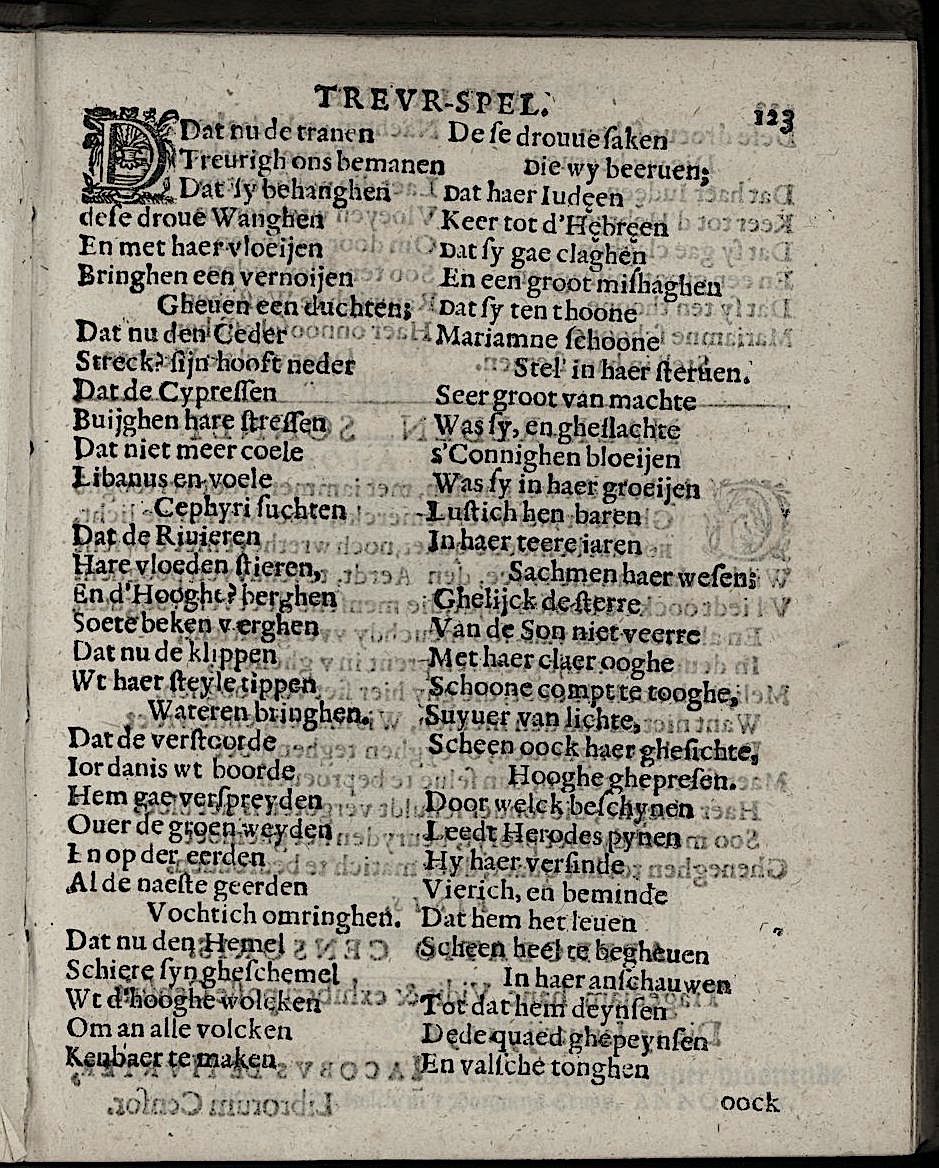 TREVR-SPEL.
123
Dat nu de tranen
Treurigh ons bemanen
Dat ſy behanghen
deſe drouë Wanghen
En met haer vloeijen
Bringhen een vernoijen
Gheuen een duchten;
Dat nu den Ceder
Streck? ſijn hooft neder
Dat de Cypreſſen
Buijghen hare ſtreſſen
Dat niet meer coele
Libanus en voele
Cephyri ſuchten
Dat de Riuieren
Hare vloeden ſtieren,
En d'Hooght? berghen
Soete beken verghen
Dat nu de klippen
Wt haer ſteyle tippen
Wateren bringhen.
Dat de verſtoorde
Iordanis wt boorde
Hem gae verſpreyden
Ouer de groen weyden
En op der eerden
Al de naeſte geerden
Vochtich omringhen.
Dat nu den Hemel
Schiere ſyn gheſchemel
Wt d'hooghe wolcken
Om an alle volcken
Kenbaer te maken
De ſe drouue ſaken
Die wy beeruen;
Dat haer Iudeen
Keer tot d'Hebreen
Dat ſy gae claghen
En een groot miſhaghen
Dat ſy ten thoone
Mariamne ſchoone
Stel in haer ſteruen.
Seer groot van machte
Was ſy, en gheſlachte
s'Connighen bloeijen
Was ſy in haer groeijen
Luſtich hen baren
In haer teere iaren
Sachmen haer weſen;
Ghelijck de ſterre
Van de Son niet veerre
Met haer claer ooghe
Schoone compt te tooghe,
Suyuer van lichte,
Scheen oock haer gheſichte,
Hooghe ghepreſen.
Door welck beſchynen
Leedt Herodes pynen
Hy haer verſinde
Vierich, en beminde
Dat hem het leuen
Scheen heel te begheuen
In haer anſchauwen
Tot dat hem deynſen
Dede quaed ghepeynſen
En valſche tonghen
oock